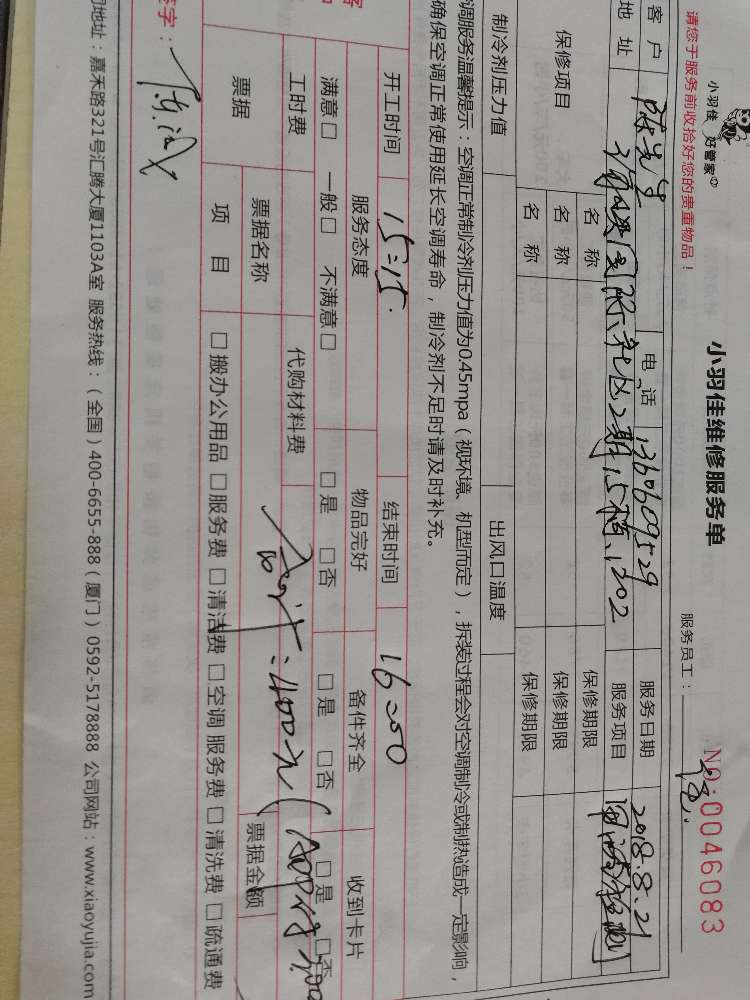 小羽佳 好管家
小羽佳维修服务单
NO:0046083
请您于服务前收拾好您的贵重物品！
服务员工：
客户 陈先生 电话 1360609529 服务日期 2018.8.21
地址 社区2期15 1302 服务项目
保修项目 名称 保修期限
名称 保修期限
名称 保修期限
制冷剂压力值 出风口温度
调服务温馨提示：空调正常制冷剂压力值为0.45mpa（视环境、机型而定），拆装过程会对空调制冷或制热造成一定影响，
确保空调正常使用延长空调寿命，制冷剂不足时请及时补充。
开工时间 15:15 结束时间 16:50
服务态度 物品完好 备件齐全 收到卡片
满意□ 一般□ 不满意□ □是 □否 □是 □否 □是 □否
工时费 代购材料费
合计：400元
票据 票据名称 票据金额
项目 □搬办公用品 □服务费 □清洁费 □空调服务费 □清洗费 □疏通费
签字：
司地址：嘉禾路321号汇腾大厦1103A室 服务热线：（全国）400-6655-888（厦门）0592-5178888 公司网站：www.xiaoyujia.com